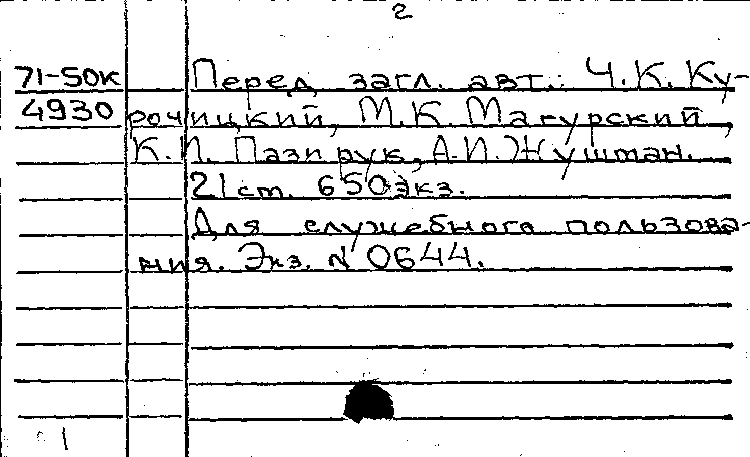 2
71-50к Перед загл. авт.: Ч.К. Ку-
4930 рочицкий, М.К. Магурский,
К.И. Пазирук, А.И. Жуштман.
21 ст. 650 экз.
Для служебного пользова-
ния. Экз. N 0644.
1